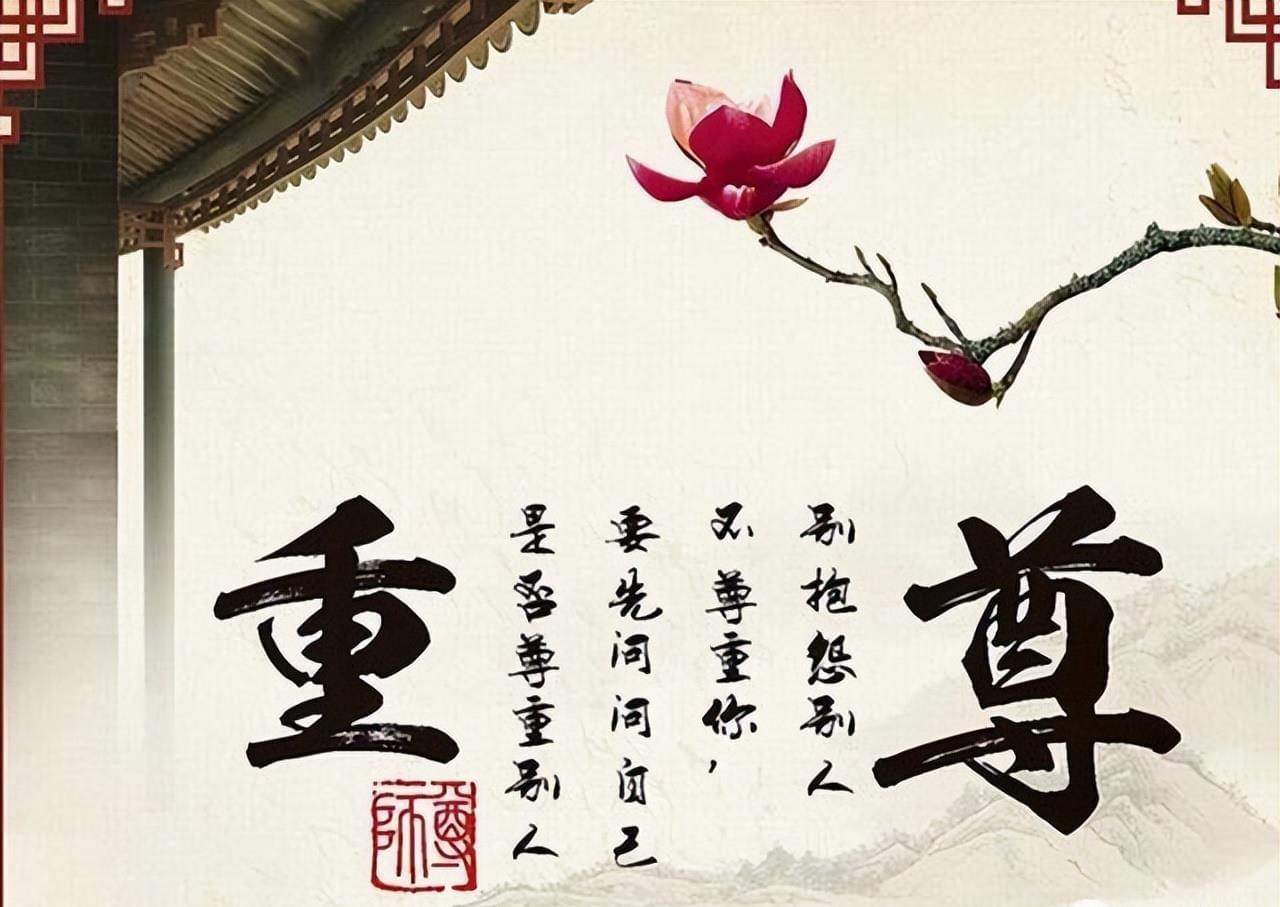 尊
别抱怨别人
不尊重你，
要先问问自己
是否尊重别人
重
尊师